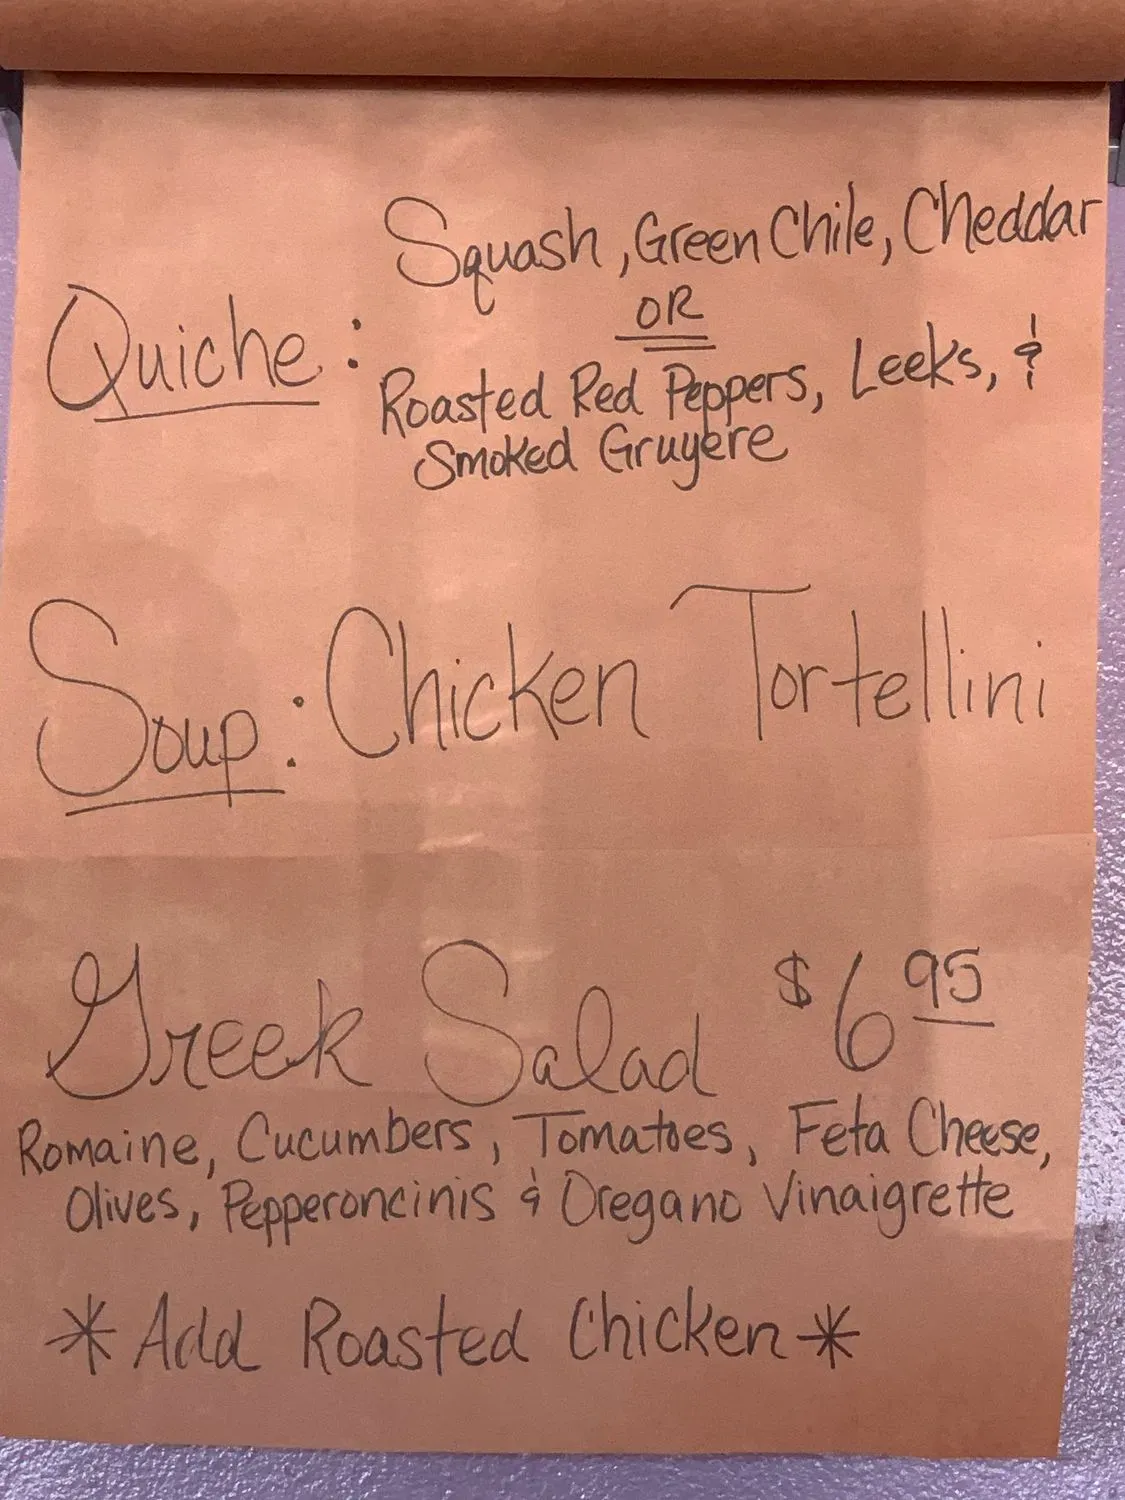 Quiche: Squash, Green Chile, Cheddar
OR
Roasted Red Peppers, Leeks, &
Smoked Gruyere
Soup: Chicken Tortellini
Greek Salad $6 95
Romaine, Cucumbers, Tomatoes, Feta Cheese,
Olives, Pepperoncinis & Oregano Vinaigrette
*Add Roasted Chicken*